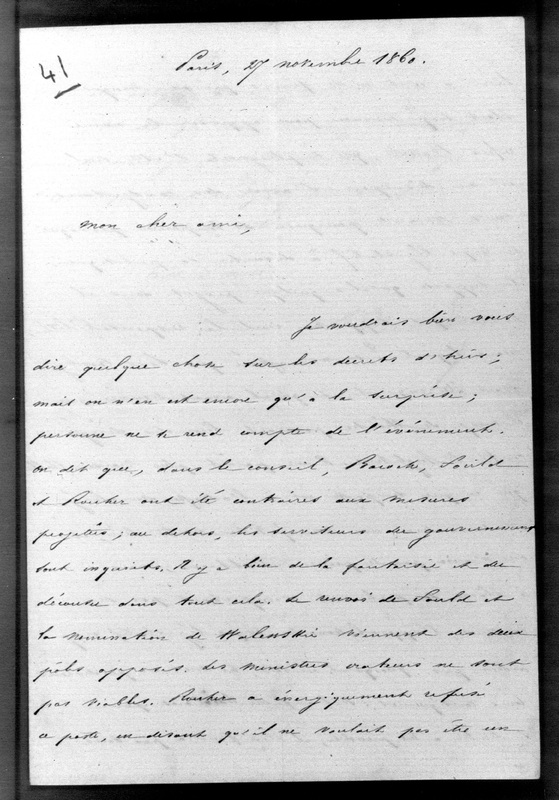 41
Paris, 27 novembre 1860.
mon cher ami,
Je voudrais bien vous
dire quelque chose sur les décrets d'hier;
mais on n'en est encore qu'à la surprise;
personne ne se rend compte de l'événement.
on dit que, dans le conseil, Baroche, Fould
et Rouher ont été contraires aux mesures
projetées; au dehors, les serviteurs du gouvernement
sont inquiets. Il y a bien de la fantaisie et du
décousu dans tout cela. Le renvoi de Fould et
la nomination de Walewski viennent des deux
pôles opposés. Les ministres orateurs ne sont
pas viables. Rouher a énergiquement refusé
ce poste, en disant qu'il ne voulait pas être un